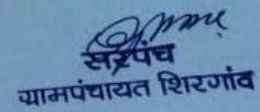 सरपंच
ग्रामपंचायत शिरगांव